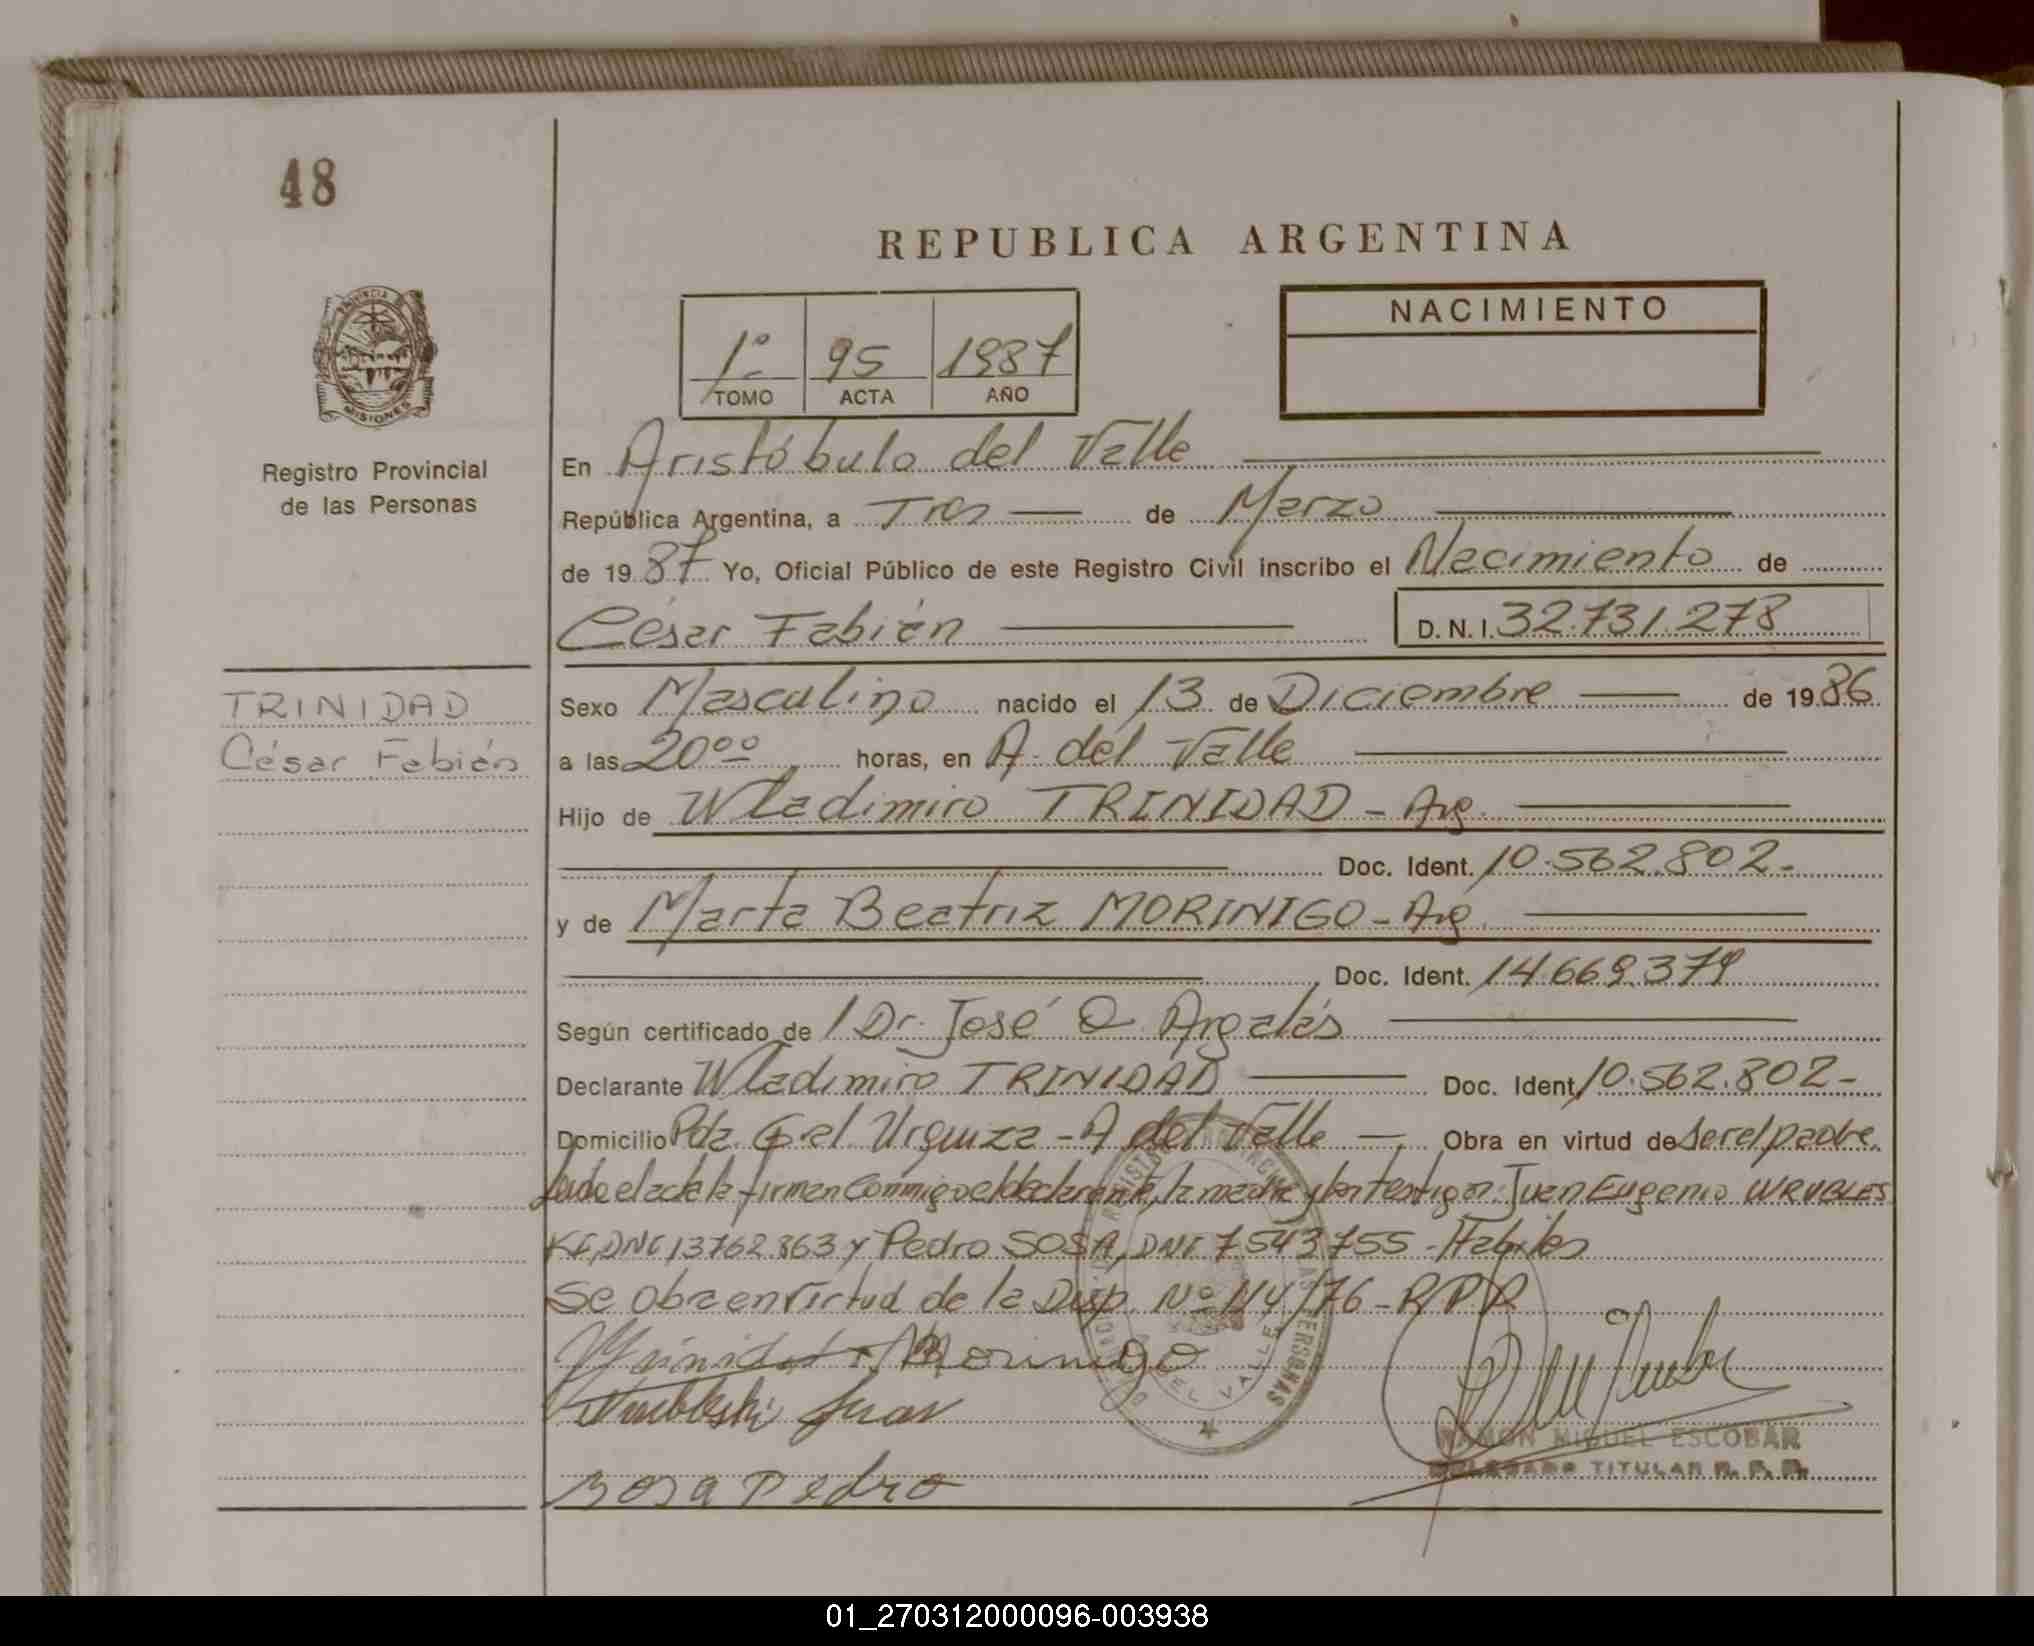 48
REPUBLICA ARGENTINA
NACIMIENTO
1º 95 1987
TOMO ACTA AÑO
PROVINCIA DE
MISIONES
Registro Provincial
de las Personas
En Aristóbulo del Valle
República Argentina, a Tres de Marzo
de 1987 Yo, Oficial Público de este Registro Civil inscribo el Nacimiento de
César Fabián D. N. I. 32.731.278
TRINIDAD
César Fabián
Sexo Masculino nacido el 13 de Diciembre de 1986
a las 20ºº horas, en A. del Valle
Hijo de Wladimiro TRINIDAD - Arg.
Doc. Ident. 10.562.802-
y de Marta Beatriz MORINIGO - Arg.
Doc. Ident. 14.669.379
Según certificado de Dr. José O. Argalás
Declarante Wladimiro TRINIDAD Doc. Ident. 10.562.802-
Domicilio Pda. Gel. Urquiza - A del Valle - Obra en virtud de ser el padre.
el acta la firman Conmigo el declarante, la madre y los testigos: Juan Eugenio WRUBLES
KI, DNI 13762.863 y Pedro SOSA, DNI 7.543.755 - Hábiles
Se obra en virtud de la Disp. Nº 114/76 - RPP
Trinidad Morinigo
Wrubleski Juan
RAMON MIGUEL ESCOBAR
DELEGADO TITULAR R. P. P.
Sosa Pedro
01_270312000096-003938